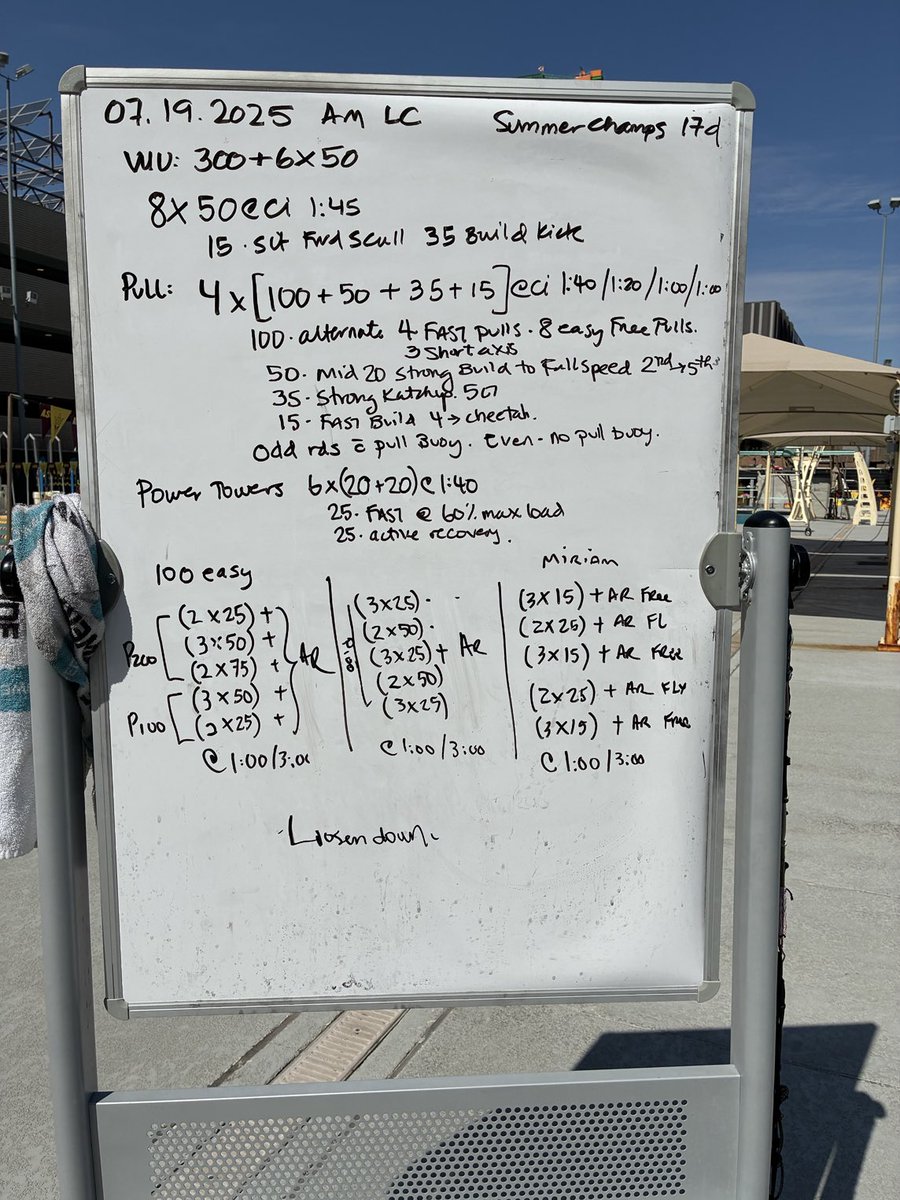 07.19.2025 AM LC Summer Champs 17d
WU: 300+6x50
8x50@ci 1:45
15. Fwd Scull 35 Build Kick
Pull: 4x[100+50+35+15]@ci 1:40/1:20/1:00/1:00
100. alternate 4 FAST pulls. 8 easy Free Pulls.
3 Short axis
50. Mid 20 Strong Build to Full Speed 2nd→5ths
35. Strong Katchup.
15. FAST Build 4→cheetah.
Odd rds c̄ pull Buoy. Even-no pull buoy.
Power Towers 6x(20+20)@1:40
25. FAST @ 60% max load
25. active recovery.
100 easy
P200 (2x25)+
(3x50)+
(2x75)+
AR
P100 (3x50)+
(2x25)+
@1:00/3:00
(3x25)
(2x50)
(3x25)+ AR
(2x50)
(3x25)
@1:00/3:00
Miriam
(3x15)+AR Free
(2x25)+AR FL
(3x15)+AR Free
(2x25)+AR FLY
(3x15)+AR Free
@1:00/3:00
Losen down.